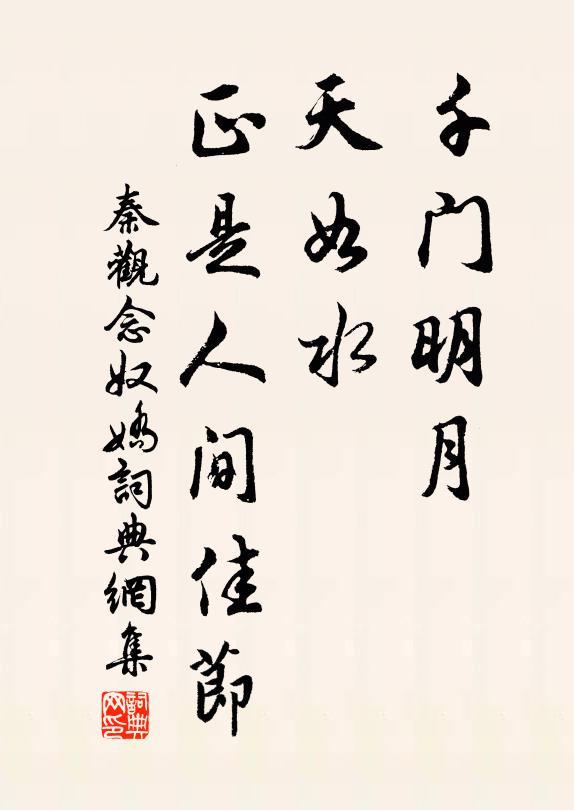 千門明月
天如水
正是人間佳節
秦觀念奴嬌詞典網集
詞典
网印